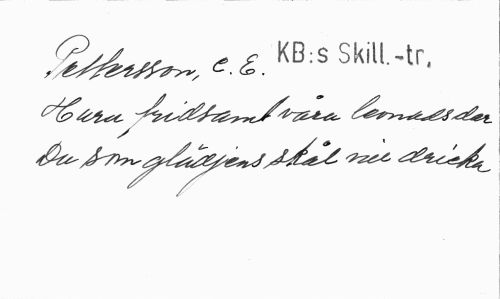 Pettersson, C. E. KB:s Skill.-tr.
Huru fridsamt våra levnadsdar
Du som glädjens skål vill dricka